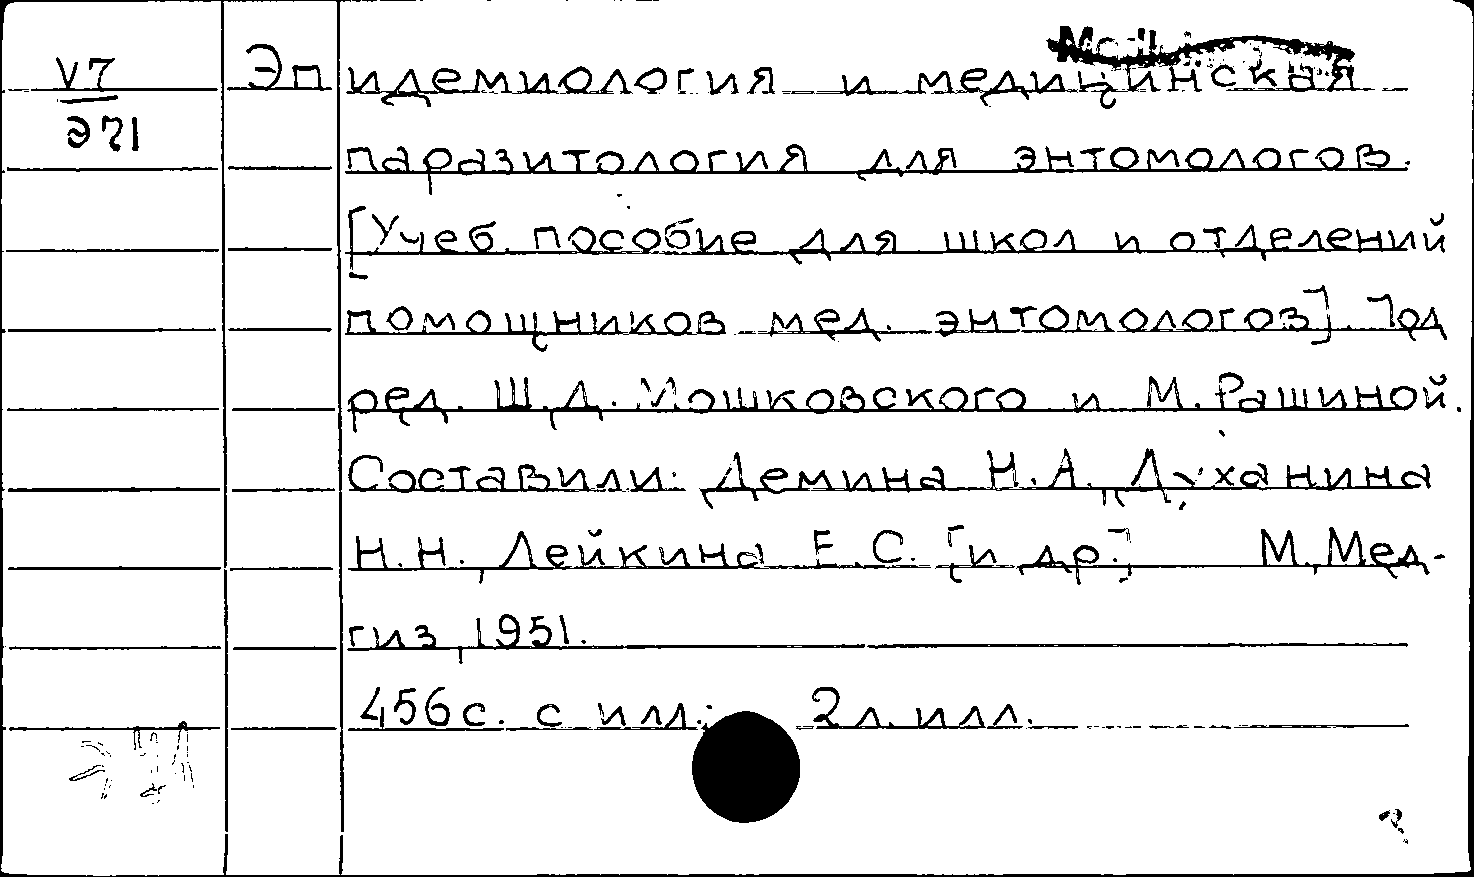 V7
Э71
Эпидемиология и медицинская
паразитология для энтомологов.
[Учеб. пособие для школ и отделений
помощников мед. энтомологов]. Под
ред. Ш.Д. Мошковского и М. Рашиной.
Составили: Демина Н.А., Духанина
Н.Н., Лейкина Е.С. [и др.] М., Мед-
гиз, 1951.
456с. с илл.; 2 л. илл.